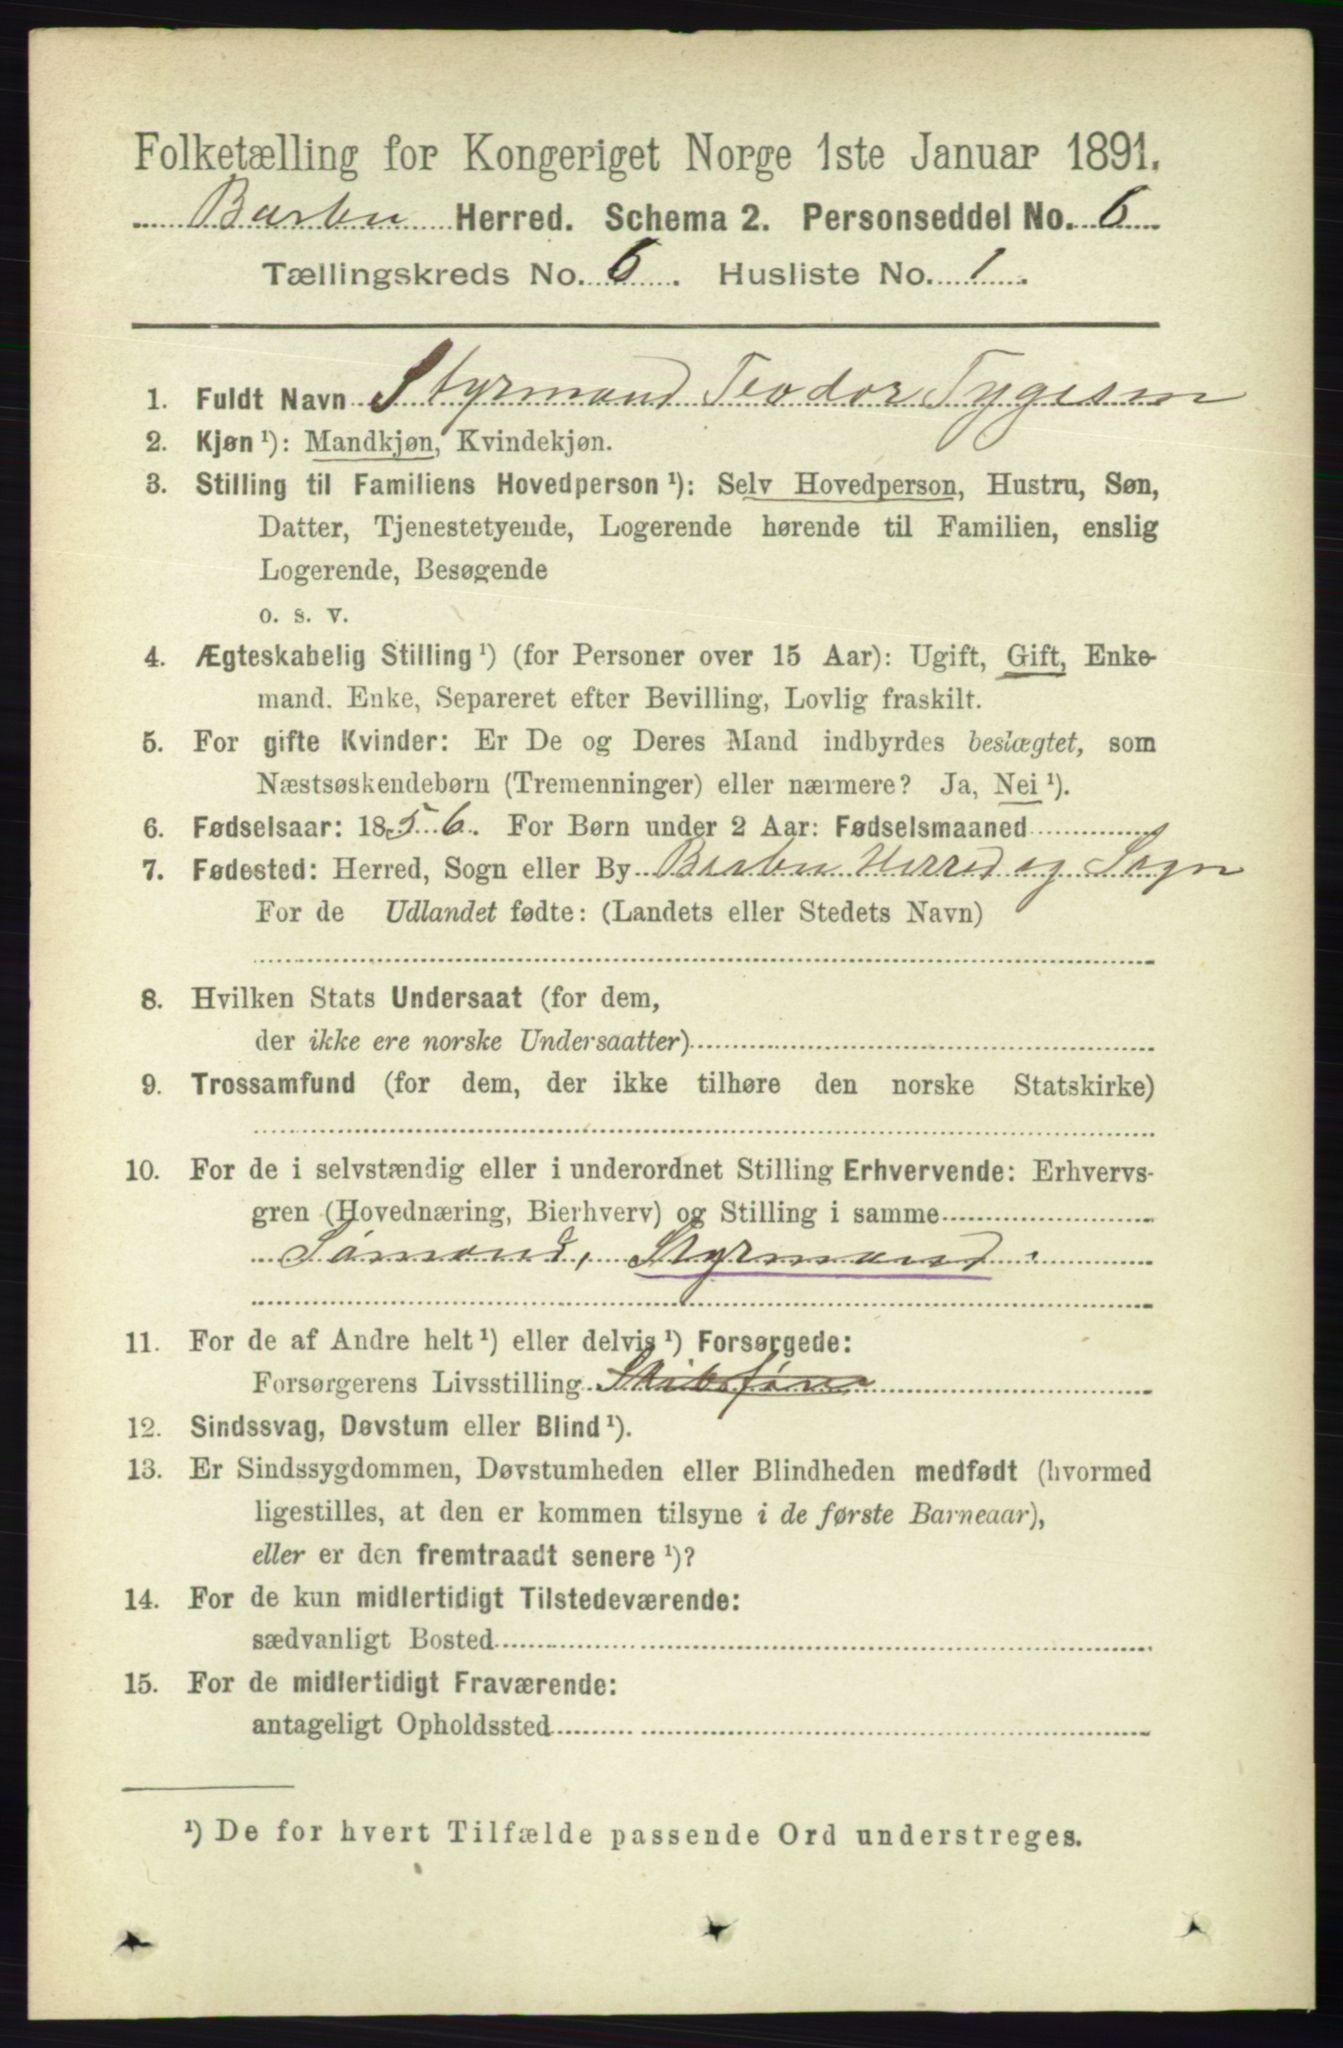 Folketælling for Kongeriget Norge 1ste Januar 1891.
Barbu Herred. Schema 2. Personseddel No. 6
Tællingskreds No. 6. Husliste No. 1.
1. Fuldt Navn Styrmand Teodor Tygesen
2. Kjøn ¹): Mandkjøn, Kvindekjøn.
3. Stilling til Familiens Hovedperson ¹): Selv Hovedperson, Hustru, Søn,
Datter, Tjenestetyende, Logerende hørende til Familien, enslig
Logerende, Besøgende
o. s. v.
4. Ægteskabelig Stilling ¹) (for Personer over 15 Aar): Ugift, Gift, Enke-
mand. Enke, Separeret efter Bevilling, Lovlig fraskilt.
5. For gifte Kvinder: Er De og Deres Mand indbyrdes beslægtet, som
Næstsøskendebørn (Tremenninger) eller nærmere? Ja, Nei ¹).
6. Fødselsaar: 1856. For Børn under 2 Aar: Fødselsmaaned
7. Fødested: Herred, Sogn eller By Barbu Herred og Sogn
For de Udlandet fødte: (Landets eller Stedets Navn)
8. Hvilken Stats Undersaat (for dem,
der ikke ere norske Undersaatter)
9. Trossamfund (for dem, der ikke tilhøre den norske Statskirke)
10. For de i selvstændig eller i underordnet Stilling Erhvervende: Erhvervs-
gren (Hovednæring, Bierhverv) og Stilling i samme
Sømand, Styrmand.
11. For de af Andre helt ¹) eller delvis ¹) Forsørgede:
Forsørgerens Livsstilling
12. Sindssvag, Døvstum eller Blind ¹).
13. Er Sindssygdommen, Døvstumheden eller Blindheden medfødt (hvormed
ligestilles, at den er kommen tilsyne i de første Barneaar),
eller er den fremtraadt senere ¹)?
14. For de kun midlertidigt Tilstedeværende:
sædvanligt Bosted
15. For de midlertidigt Fraværende:
antageligt Opholdssted
¹) De for hvert Tilfælde passende Ord understreges.